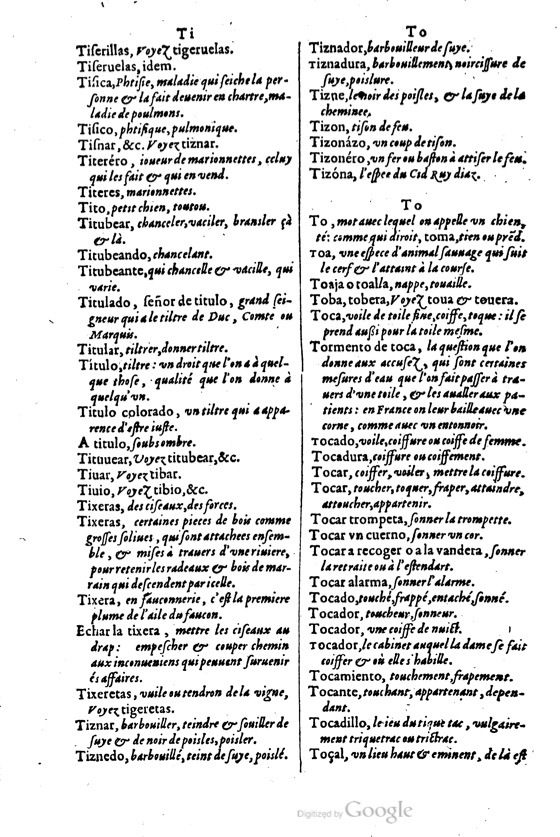 Ti
Tiſerillas, Voyez tigeruelas.
Tiſeruelas, idem.
Tiſica, Phtiſie, maladie qui ſeiche la per-
ſonne & la fait deuenir en chartre, ma-
ladie de poulmons.
Tiſico, phtiſique, pulmonique.
Tiſnar, &c. Voyez tiznar.
Titeréro, ioueur de marionnettes, celuy
qui les fait & qui en vend.
Titeres, marionnettes.
Tito, petit chien, toutou.
Titubear, chanceler, vaciler, bransler çà
& là.
Titubeando, chancelant.
Titubeante, qui chancelle & vacille, qui
varie.
Titulado, ſeñor de titulo, grand ſei-
gneur qui a le tiltre de Duc, Comte ou
Marquis.
Titular, tiltrer, donner tiltre.
Título, tiltre: vn droit que l'on a à quel-
que those, qualité que l'on donne à
quelqu'vn.
Titulo colorado, vn tiltre qui a appa-
rence d'eſtre iuſte.
A titulo, ſoubs ombre.
Tituuear, Voyez titubear, &c.
Tiuar, Voyez tibar.
Tiuio, Voyez tibio, &c.
Tixeras, des ciſeaux, des forces.
Tixeras, certaines pieces de bois comme
groſſes ſoliues, qui ſont attachees enſem-
ble, & miſes à trauers d'vne riuiere,
pour retenir les radeaux & bois de mar-
rain qui deſcendent par icelle.
Tixera, en fauconnerie, c'eſt la premiere
plume de l'aile du faucon.
Echar la tixera, mettre les ciſeaux au
drap: empeſcher & couper chemin
aux inconueniens qui peuuent ſuruenir
és affaires.
Tixeretas, vuile ou tendron de la vigne,
Voyez tigeretas.
Tiznar, barbouiller, teindre & ſouiller de
ſuye & de noir de poisles, poisler.
Tiznedo, barbouillé, teint de ſuye, poislé.
To
Tiznador, barbouilleur de ſuye.
Tiznadura, barbouillement, noirciſſure de
ſuye, poislure.
Tizne, le noir des poiſles, & la ſuye de la
cheminee.
Tizon, tiſon de feu.
Tizonázo, vn coup de tiſon.
Tizonéro, vn fer ou baſton à attiſer le feu.
Tizóna, l'eſpee du Cid Ruy diaz.
To
To, mot auec lequel on appelle vn chien,
té: comme qui diroit, toma, tien ou prẽd.
Toa, vne eſpece d'animal ſauuage qui ſuit
le cerf & l'attaint à la courſe.
Toaja o toalla, nappe, touaille.
Toba, tobera, Voyez toua & touera.
Toca, voile de toile fine, coiffe, toque: il ſe
prend auſſi pour la toile meſme.
Tormento de toca, la queſtion que l'on
donne aux accuſez, qui ſont certaines
meſures d'eau que l'on fait paſſer à tra-
uers d'vne toile, & les aualler aux pa-
tients: en France on leur baille auec vne
corne, comme auec vn entonnoir.
Tocado, voile, coiffure ou coiffe de femme.
Tocadura, coiffure ou coiffement.
Tocar, coiffer, voiler, mettre la coiffure.
Tocar, toucher, toquer, fraper, attaindre,
attoucher, appartenir.
Tocar trompeta, ſonner la trompette.
Tocar vn cuerno, ſonner vn cor.
Tocar a recoger o a la vandera, ſonner
la retraite ou à l'eſtendart.
Tocar alarma, ſonner l'alarme.
Tocado, touché, frappé, entaché, ſonné.
Tocador, toucheur, ſonneur.
Tocador, vne coiffe de nuict.
Tocador, le cabinet auquel la dame ſe fait
coiffer & où elle s'habille.
Tocamiento, touchement, frapement.
Tocante, touchant, appartenant, depen-
dant.
Tocadillo, le ieu du tique tac, vulgaire-
ment triquetrac ou trictrac.
Toçal, vn lieu haut & eminent, de là eſt
Digitized by Google